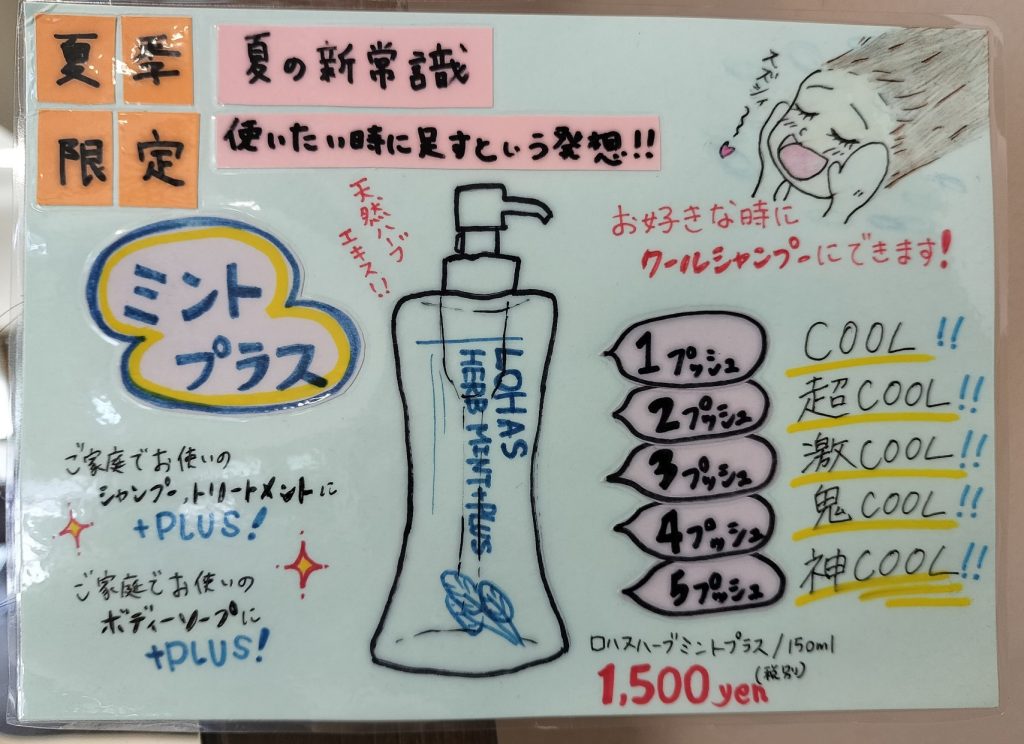 夏季
限定
夏の新常識
使いたい時に足すという発想!!
天然ハーブ
エキス!!
ミント
プラス
お好きな時に
クールシャンプーにできます!
LOHAS
HERB MINT+PLUS
1プッシュ COOL!!
2プッシュ 超COOL!!
3プッシュ 激COOL!!
4プッシュ 鬼COOL!!
5プッシュ 神COOL!!
ご家庭でお使いの
シャンプー,トリートメントに
+PLUS!
ご家庭でお使いの
ボディーソープに
+PLUS!
ロハスハーブミントプラス/150ml
1,500yen(税別)